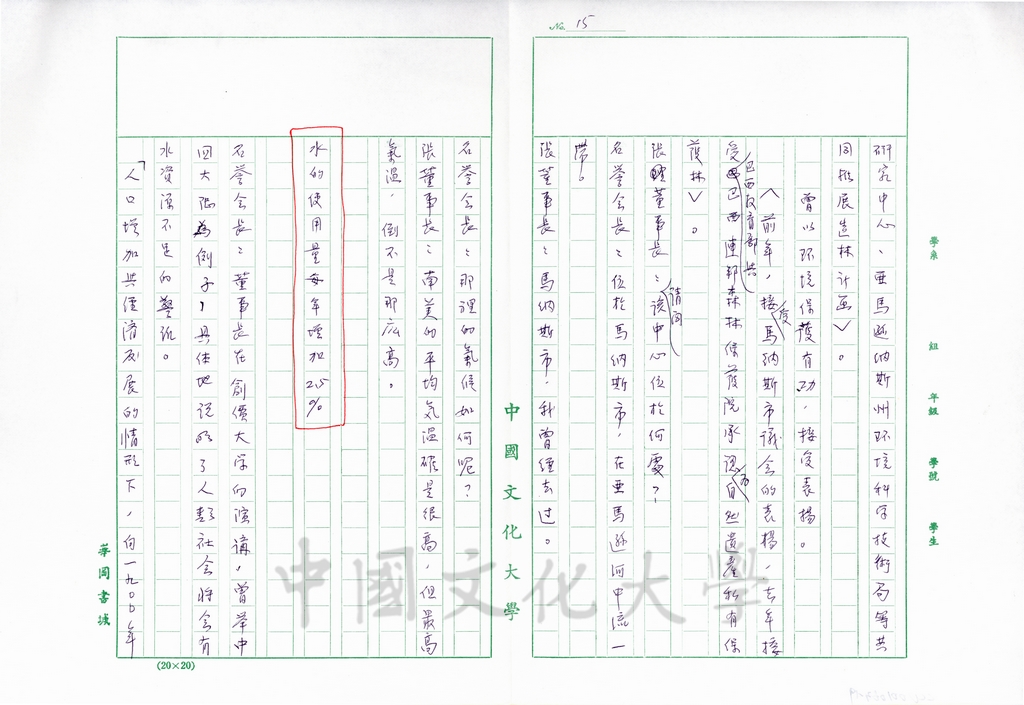 No. 15
研究中心、亜馬遜納斯州环境科学技術局等共
同推展造林计画∨。
曾以环境保護有功，接受表揚。
∧前年，接受馬納斯市议会的表揚，去年接
受巴西政育部共巴西連邦森林保護院承認为自然遺產私有保
護林∨。
張董事長：請问該中心位於何處？
名誉会長：位於馬納斯市，在亜馬遜河中流一
帶。
張董事長：馬納斯市，我曾經去过。
學系
組
年級
學號
學生
中國文化大學
名誉会長：那裡的氣候如何呢？
張董事長：南美的平均气温確是很高，但最高
氣温倒不是那広高。
水的使用量每年增加2.5%
名誉会長：董事長在創價大学的演講，曾举中
国大陆為例子，具体地说明了人類社会将会有
水資源不足的警訊。
「人口增加與經濟发展的情形下，自一九〇〇年
華岡書城
(20×20)
中國文化大學